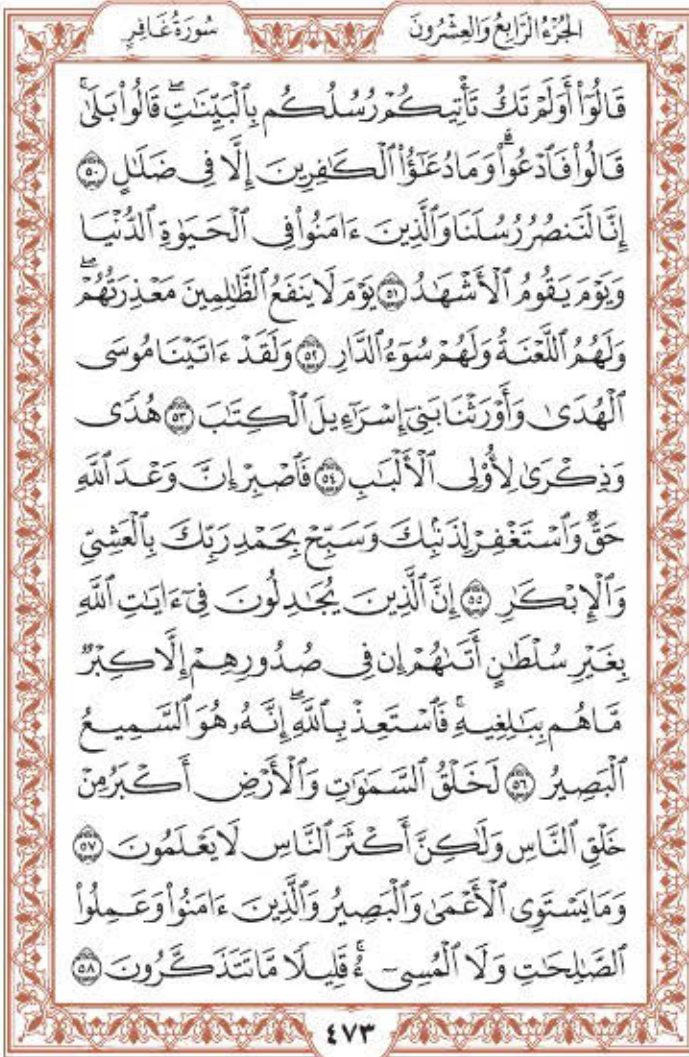 الجُزْءُ الرَّابِعُ وَالعِشْرُونَ
سُورَةُ غَافِرٍ
قَالُوٓا۟ أَوَلَمْ تَكُ تَأْتِيكُمْ رُسُلُكُم بِٱلْبَيِّنَـٰتِ ۖ قَالُوا۟ بَلَىٰ ۚ
قَالُوا۟ فَٱدْعُوا۟ ۗ وَمَا دُعَـٰٓؤُا۟ ٱلْكَـٰفِرِينَ إِلَّا فِى ضَلَـٰلٍ ٥٠
إِنَّا لَنَنصُرُ رُسُلَنَا وَٱلَّذِينَ ءَامَنُوا۟ فِى ٱلْحَيَوٰةِ ٱلدُّنْيَا
وَيَوْمَ يَقُومُ ٱلْأَشْهَـٰدُ ٥١ يَوْمَ لَا يَنفَعُ ٱلظَّـٰلِمِينَ مَعْذِرَتُهُمْ ۖ
وَلَهُمُ ٱللَّعْنَةُ وَلَهُمْ سُوٓءُ ٱلدَّارِ ٥٢ وَلَقَدْ ءَاتَيْنَا مُوسَى
ٱلْهُدَىٰ وَأَوْرَثْنَا بَنِىٓ إِسْرَٰٓءِيلَ ٱلْكِتَـٰبَ ٥٣ هُدًى
وَذِكْرَىٰ لِأُو۟لِى ٱلْأَلْبَـٰبِ ٥٤ فَٱصْبِرْ إِنَّ وَعْدَ ٱللَّهِ
حَقٌّ وَٱسْتَغْفِرْ لِذَنۢبِكَ وَسَبِّحْ بِحَمْدِ رَبِّكَ بِٱلْعَشِىِّ
وَٱلْإِبْكَـٰرِ ٥٥ إِنَّ ٱلَّذِينَ يُجَـٰدِلُونَ فِىٓ ءَايَـٰتِ ٱللَّهِ
بِغَيْرِ سُلْطَـٰنٍ أَتَىٰهُمْ ۙ إِن فِى صُدُورِهِمْ إِلَّا كِبْرٌ
مَّا هُم بِبَـٰلِغِيهِ ۚ فَٱسْتَعِذْ بِٱللَّهِ ۖ إِنَّهُۥ هُوَ ٱلسَّمِيعُ
ٱلْبَصِيرُ ٥٦ لَخَلْقُ ٱلسَّمَـٰوَٰتِ وَٱلْأَرْضِ أَكْبَرُ مِنْ
خَلْقِ ٱلنَّاسِ وَلَـٰكِنَّ أَكْثَرَ ٱلنَّاسِ لَا يَعْلَمُونَ ٥٧
وَمَا يَسْتَوِى ٱلْأَعْمَىٰ وَٱلْبَصِيرُ وَٱلَّذِينَ ءَامَنُوا۟ وَعَمِلُوا۟
ٱلصَّـٰلِحَـٰتِ وَلَا ٱلْمُسِىٓءُ ۚ قَلِيلًا مَّا تَتَذَكَّرُونَ ٥٨
٤٧٣